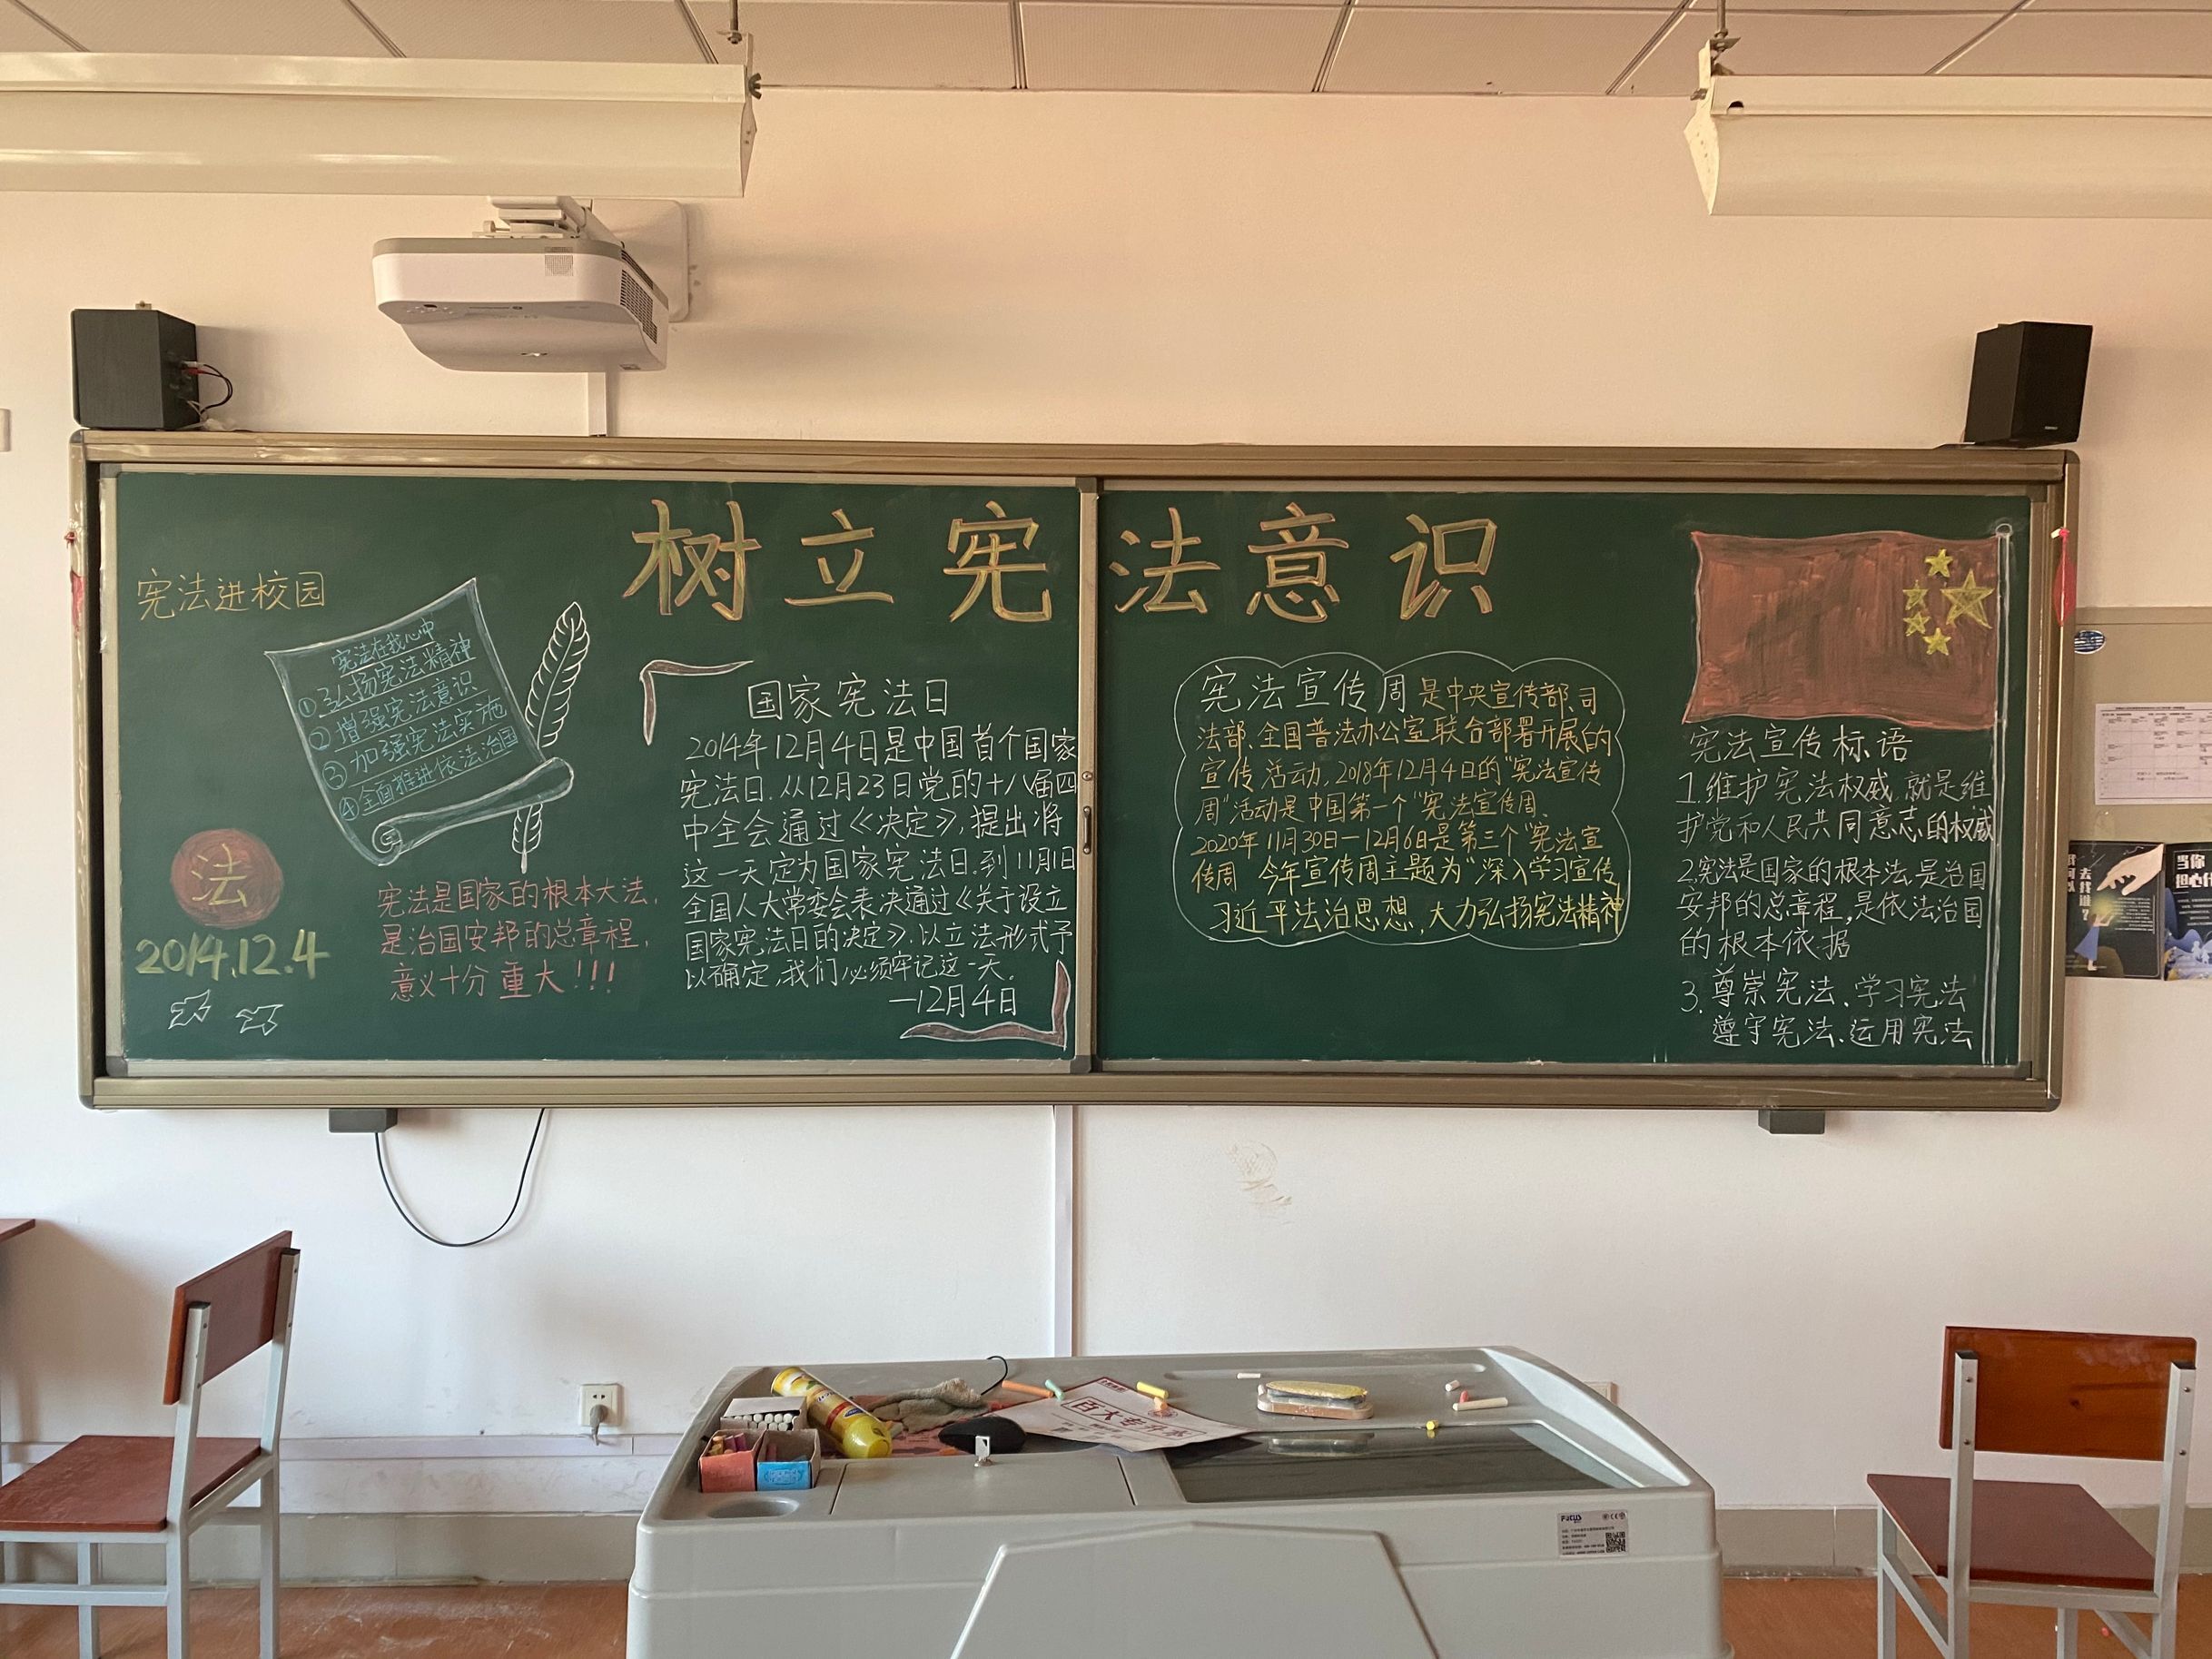 树立宪法意识
宪法进校园
宪法在我心中
①弘扬宪法精神
②增强宪法意识
③加强宪法实施
④全面推进依法治国
法
2014.12.4
宪法是国家的根本大法,
是治国安邦的总章程,
意义十分重大!!!
国家宪法日
2014年12月4日是中国首个国家
宪法日.从12月23日党的十八届四
中全会通过《决定》,提出将
这一天定为国家宪法日.到11月1日
全国人大常委会表决通过《关于设立
国家宪法日的决定》.以立法形式予
以确定,我们必须牢记这一天.
—12月4日
宪法宣传周是中央宣传部、司
法部、全国普法办公室联合部署开展的
宣传活动,2018年12月4日的"宪法宣传
周"活动是中国第一个"宪法宣传周、
2020年11月30日—12月6日是第三个"宪法宣
传周 今年宣传周主题为"深入学习宣传
习近平法治思想,大力弘扬宪法精神
宪法宣传标语
1.维护宪法权威,就是维
护党和人民共同意志的权威
2.宪法是国家的根本法.是治国
安邦的总章程,是依法治国
的根本依据
3.尊崇宪法、学习宪法
遵守宪法、运用宪法
去找谁?
当你
担心
百大专升本
FOCUS